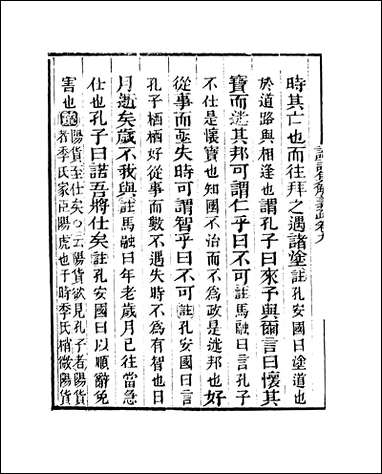 論語集解義疏卷九
時其亡也而往拜之遇諸塗註孔安國曰塗道也
於道路與相逢也謂孔子曰來予與爾言曰懷其
寶而迷其邦可謂仁乎曰不可註馬融曰言孔子
不仕是懷寶也知國不治而不為政是迷邦也好
從事而亟失時可謂智乎曰不可註孔安國曰言
孔子栖栖好從事而數不遇失時不為有智也日
月逝矣歲不我與註馬融曰年老歲月已往當急
仕也孔子曰諾吾將仕矣註孔安國曰以順辭免
害也疏陽貨至仕矣○云陽貨欲見孔子者陽貨
者季氏家臣陽虎也于時季氏稍微陽貨